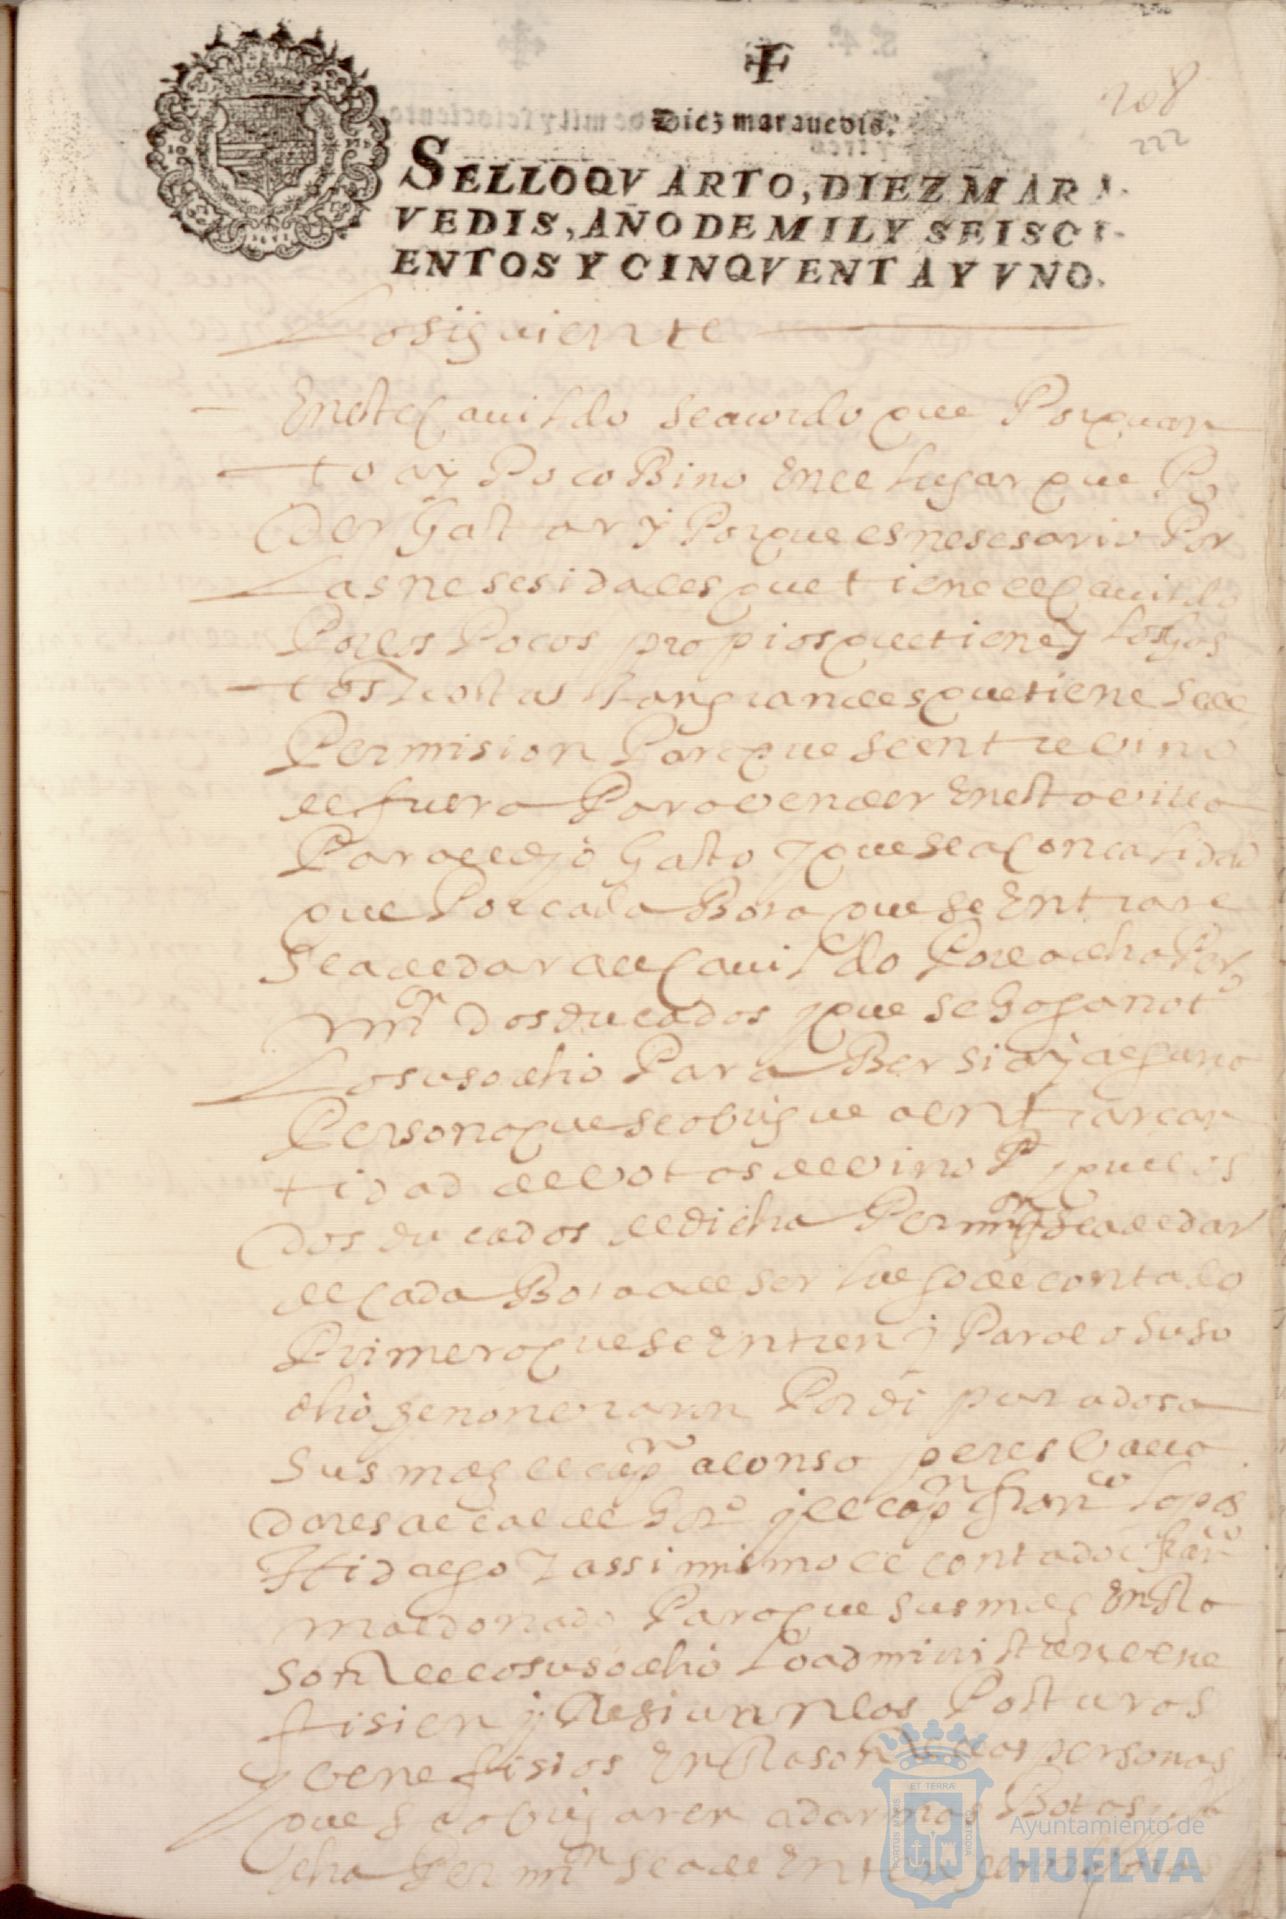 208
222
Diez marauedis.
SELLOQVARTO, DIEZ MARA
VEDIS, AÑO DE MIL Y SEISCI
ENTOS Y CINQVENTA Y VNO.
Lo siguiente
En este Cauildo se acordo que Por quan
to ay Poco Bino En el lugar que Po
der Gastar y Porque es nesesario Por
Las nesesidades que tiene el Cauildo
Por los Pocos propios que tiene y los gas
tos y costas tan grandes que tiene se de
Permision Para que se entre vino
de fuera Para vender En esta villa
Para el dho Gasto y que sea Con calidad
que Por cada Bota que se Entrare
se a de dar al Cauildo Por la dha Per
mon Dos ducados y que se haga not
Lo susodho Para Ber si ay alguna
Persona que se obligue a entrar can
tidad de botas de vino y que los
Dos ducados de dicha Permon que se a de dar
de Cada Bota a de ser luego de contado
Primero que se Entren y Para lo suso
dho se nonbraron Por diputados a
sus mds el capn alonso peres
alcalde y el capn franco lopes
Hidalgo y assimismo el contador franco
maldonado Para que sus mds En Rao
son de lo susodho Lo administren bene
fisien y Resiuan las Posturas
y benefisios En Rason de las personas
que se obligaren a dar mas Botas
dha Permon se a de
ET TERRA
Ayuntamiento de
HUELVA